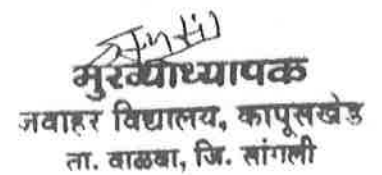 मुख्याध्यापक
जवाहर विद्यालय, कापूसखेड
ता. वाळवा, जि. सांगली